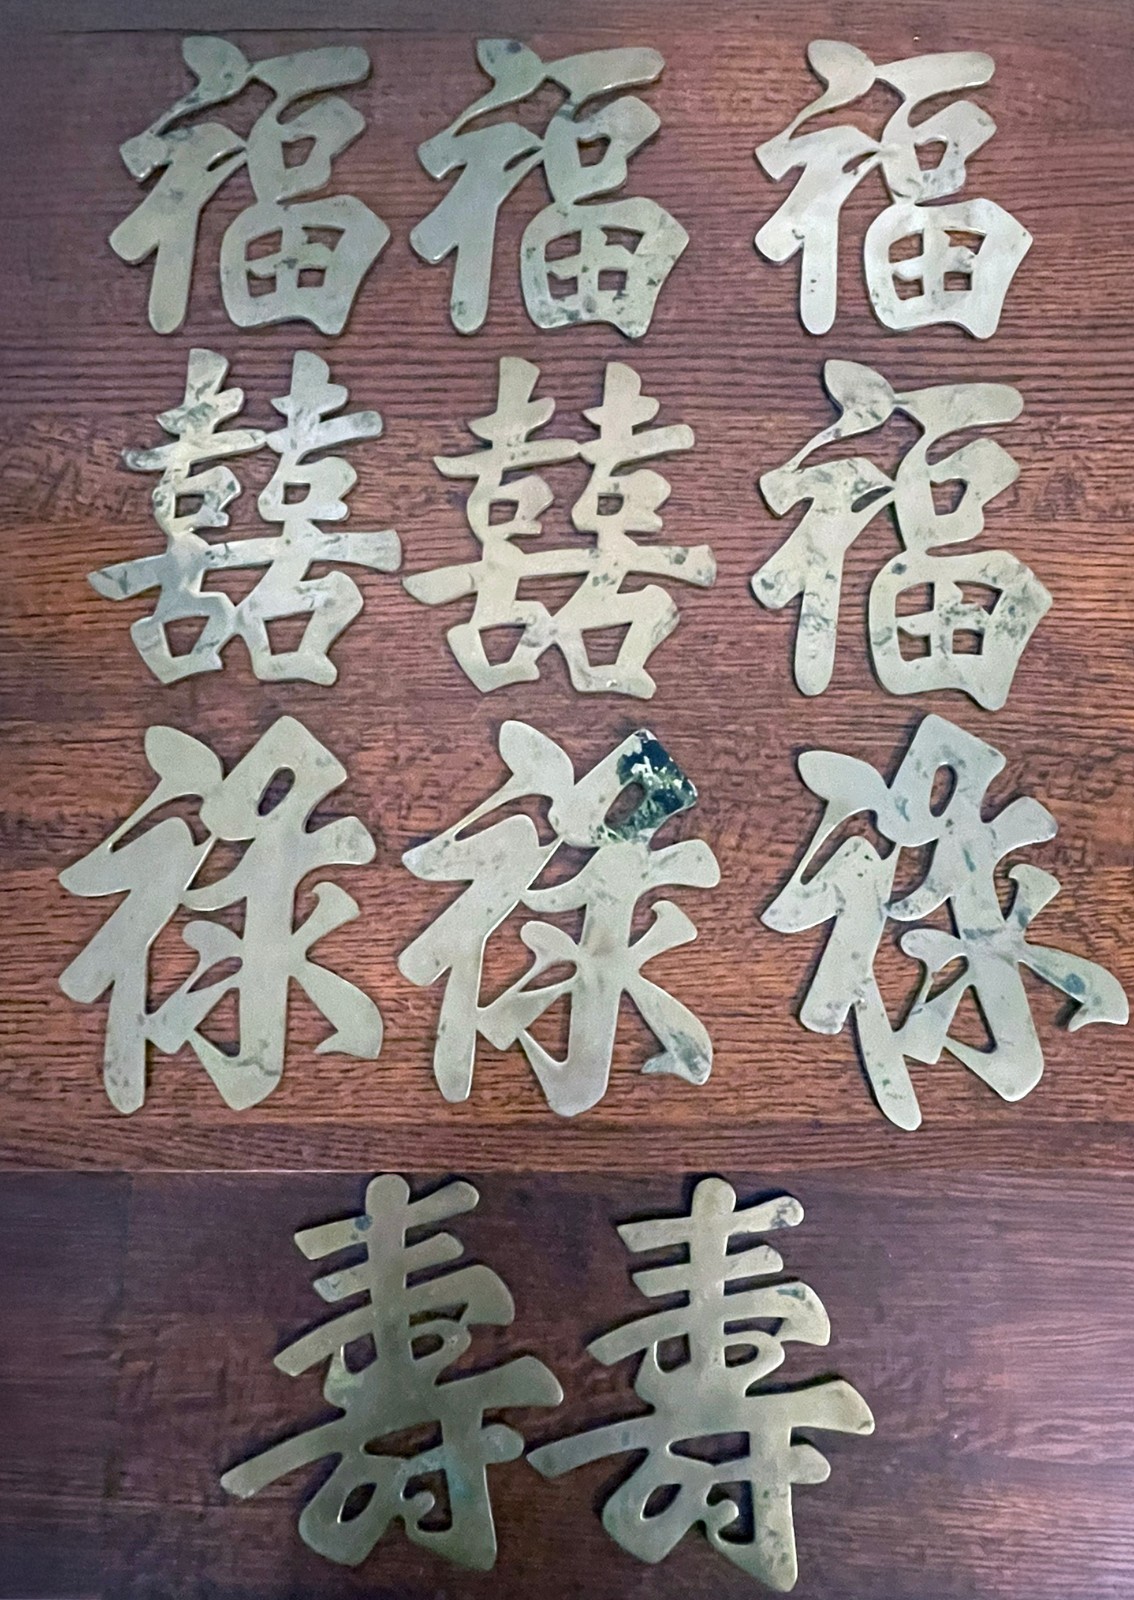 福福福
囍囍福
祿祿祿
壽壽